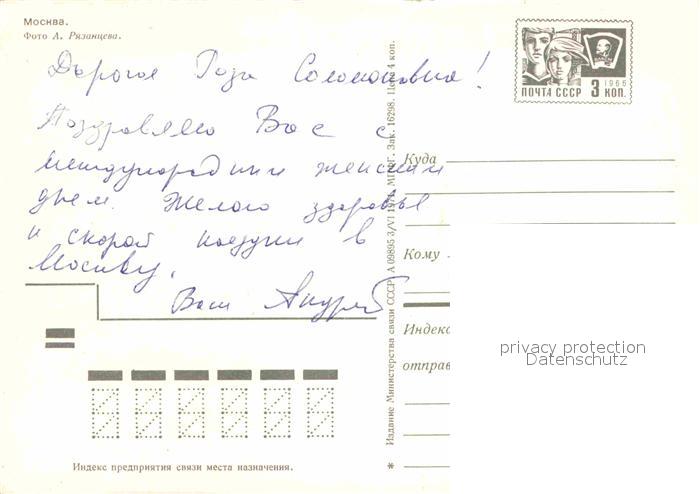 Москва.
Фото А. Рязанцева.
Дорогая Роза Соломоновна!
Поздравляю Вас с
международним женским
днем. Желаю здоровья
и скорой поездки в
Москву.
Ваш Андрей
Индекс предприятия связи места назначения.
Издание Министерства связи СССР. А 09895 3/VI МПФГ. Зак. 16298. Цена 4 коп.
1966
ПОЧТА СССР 3 КОП.
Куда
Кому
Индекс
отправ
*
privacy protection
Datenschutz